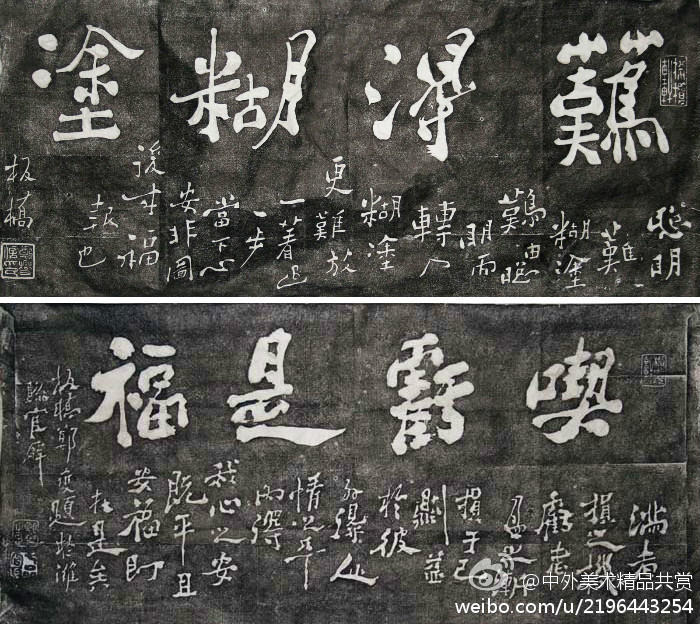 難得糊塗
聰明
難
糊塗
難由聰
明而
轉入
糊塗
更難放
一著退
一步
當下心
安非圖
後来福
報也
板橋
喫虧是福
滿者
損之機
虧者
盈之漸
損于己
則益
於彼
外得人
情之平
內得
我心之安
既平且
安福即
在是矣
板橋鄭燮題於濰
縣官
@中外美术精品共赏
weibo.com/u/2196443254